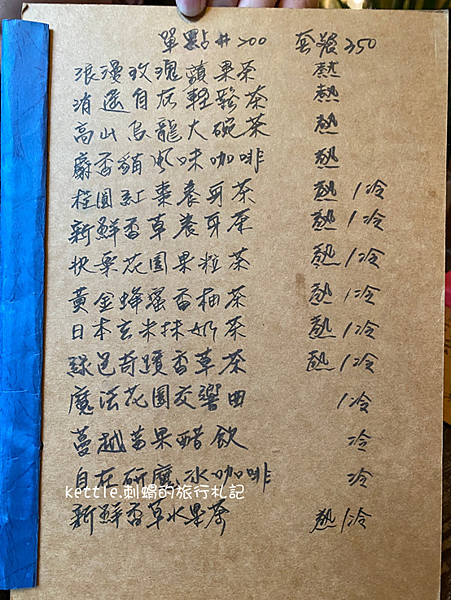 單點#200 套餐250
浪漫玫瑰蘋果茶 熱
消遙自在輕鬆茶 熱
高山烏龍大碗茶 熱
麝香貓風味咖啡 熱
桂圓紅棗養身茶 熱/冷
新鮮香草養身茶 熱/冷
快樂花園果粒茶 熱/冷
黃金蜂蜜香柚茶 熱/冷
日本玄米抹奶茶 熱/冷
綠色奇蹟香草茶 熱/冷
魔法花園交響曲 /冷
蔓越莓果醋飲 冷
自在研磨冰咖啡 冷
kettle.刺蝟的旅行札記
新鮮香草水果茶 熱/冷